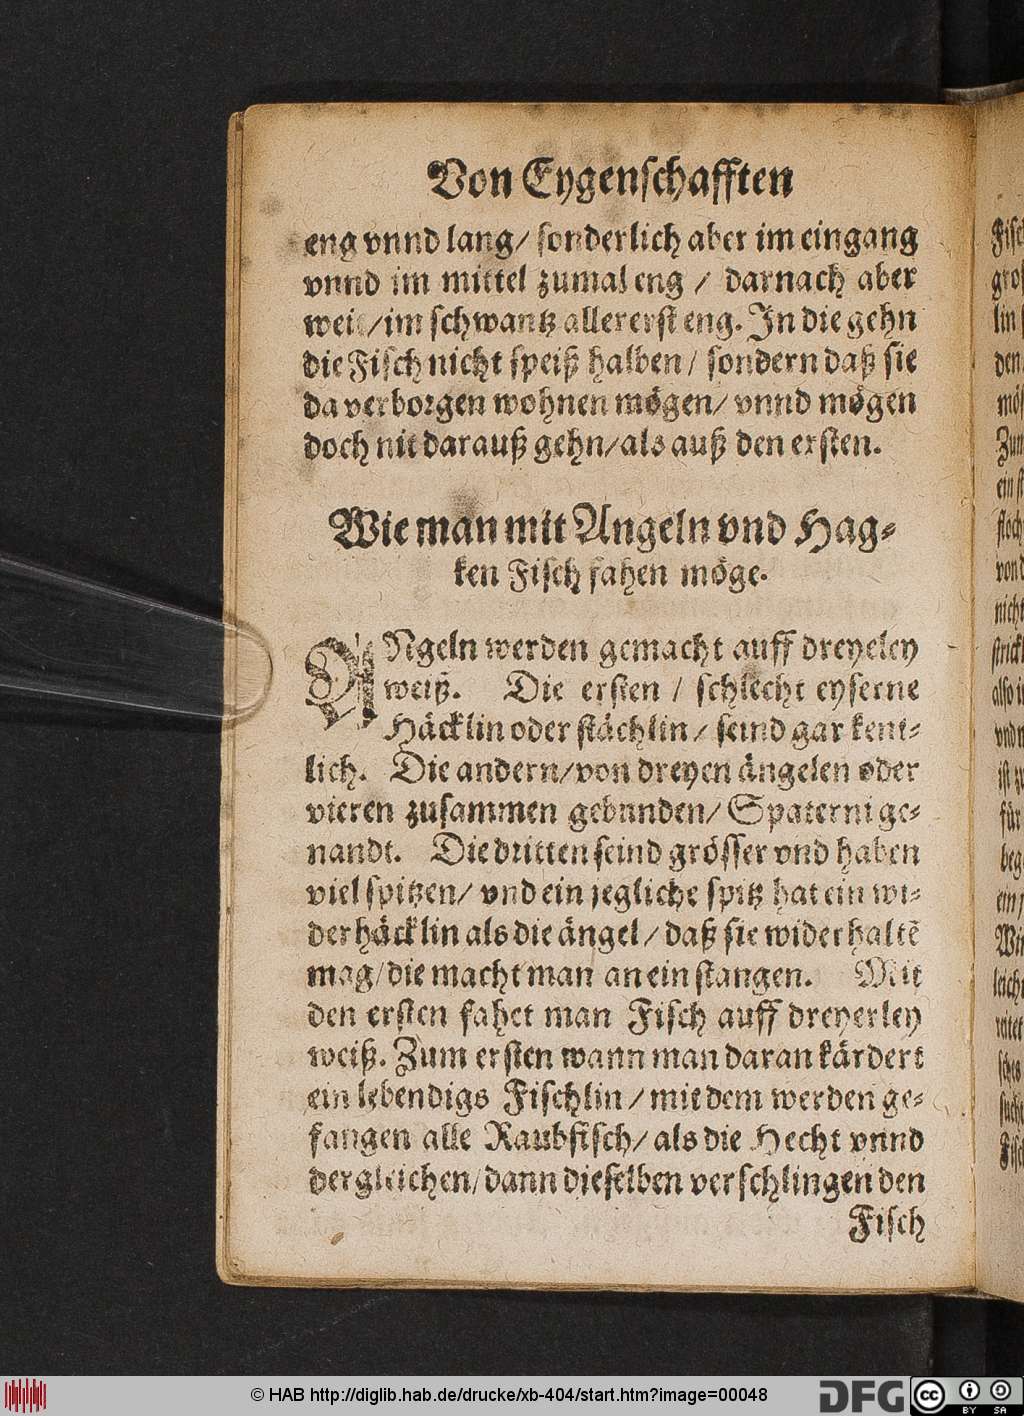 Von Eygenschafften
eng vnnd lang/ sonderlich aber im eingang
vnnd im mittel zumal eng / darnach aber
weit/im schwantz allererst eng. In die gehn
die Fisch nicht speiß halben/ sondern daß sie
da verborgen wohnen mögen/ vnnd mögen
doch nit darauß gehn/als auß den ersten.
Wie man mit Angeln vnd Hag-
ken Fisch fahen möge.
ANgeln werden gemacht auff dreyeley
weiß. Die ersten / schlecht eyserne
Häcklin oder stächlin/ seind gar kent-
lich. Die andern/von dreyen ängelen oder
vieren zusammen gebunden/ Spaterni ge-
nandt. Die dritten seind grösser vnd haben
viel spitzen/ vnd ein jegliche spitz hat ein wi-
derhäcklin als die ängel/ daß sie widerhaltẽ
mag/die macht man an ein stangen. Mit
den ersten fahet man Fisch auff dreyerley
weiß. Zum ersten wann man daran kärdert
ein lebendigs Fischlin/ mit dem werden ge-
fangen alle Raubfisch/ als die Hecht vnnd
dergleichen/dann dieselben verschlingen den
Fisch
© HAB http://diglib.hab.de/drucke/xb-404/start.htm?image=00048
DFG
cc
BY SA